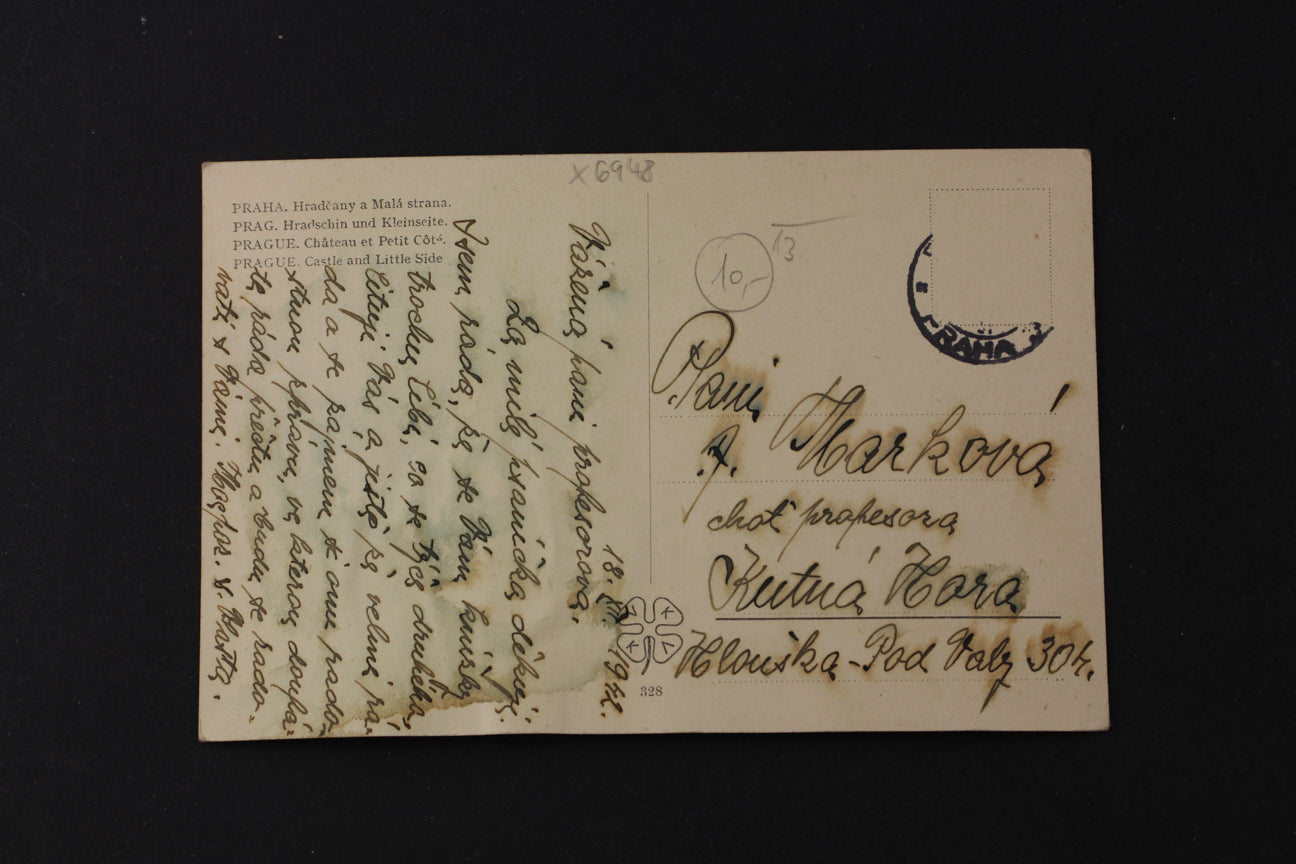 x 6948
PRAHA. Hradčany a Malá strana.
PRAG. Hradschin und Kleinseite.
PRAGUE. Château et Petit Côté.
PRAGUE. Castle and Little Side
1942.
Vážená paní profesorová,
Za milé psaníčko děkuji.
Jsem ráda, že se Vám knížky
trochu líbí, co se týče druhého,
lituji Vás a jistě že velmi rá-
da a se zájmem si onu prado-
stnou zprávu, ve kterou doufá-
te ráda přečtu a budu se rado-
vati s Vámi.
328
10,-
13
PRAHA
Paní
A. Marková
choť profesora
Kutná Hora
Hlouška - Pod Valy 304.